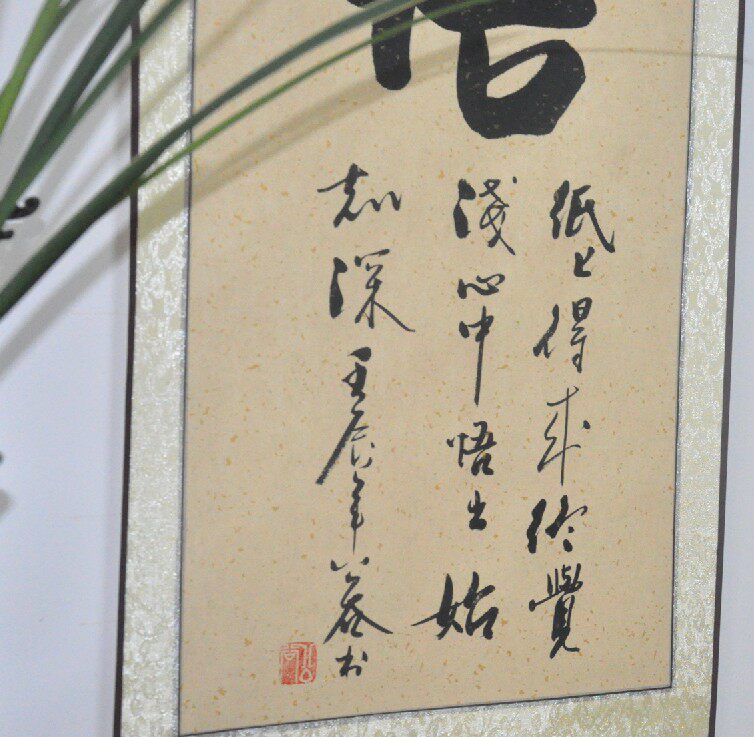 紙上得來終覺
淺心中悟出始
知深壬辰年
書